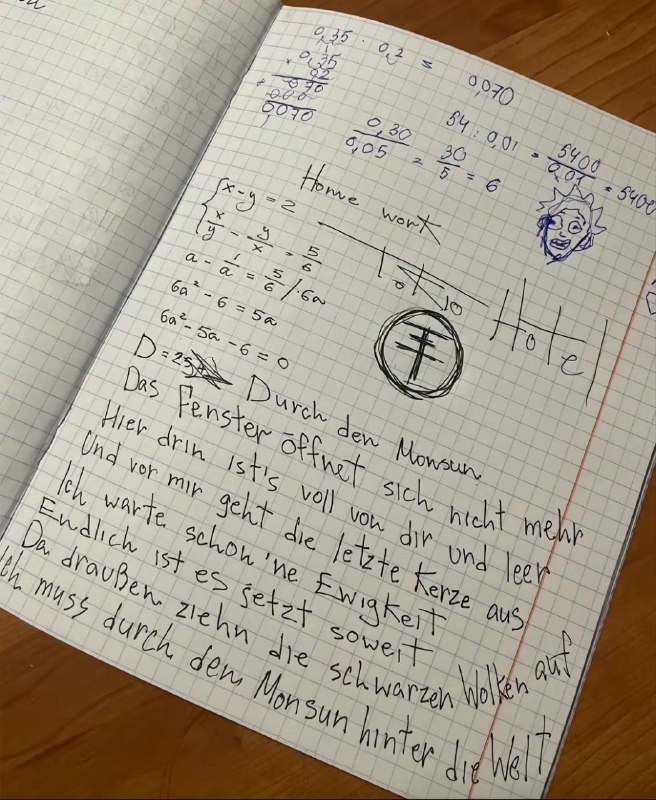 0,35 · 0,2 = 0,070
0,35
0,2
070
000
0070
54 : 0,01 = 5400/0,01 = 5400
0,30/0,05 = 30/5 = 6
Home work
x - y = 2
x/y - y/x = 5/6
a - 1/a = 5/6 / ·6a
6a² - 6 = 5a
6a² - 5a - 6 = 0
D = 25
Tokio Hotel
Durch den Monsun
Das Fenster öffnet sich nicht mehr
Hier drin ist's voll von dir und leer
Und vor mir geht die letzte Kerze aus
Ich warte schon 'ne Ewigkeit
Endlich ist es jetzt soweit
Da draußen ziehn die schwarzen Wolken auf
Ich muss durch den Monsun hinter die Welt